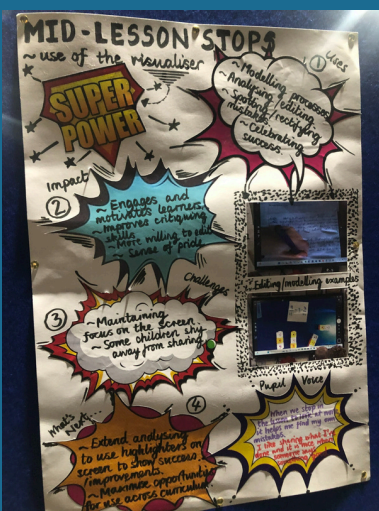 MID-LESSON STOPS
~ use of the visualiser
SUPER
POWER
① Uses
~ Modelling processes
~ Analysing/editing
~ Spotting/rectifying
mistakes
~ Celebrating
success.
Impact
②
~ Engages and
motivates learners
~ Improves critiquing
skills
~ More willing to edit
~ Sense of pride
Editing/modelling examples
Challenges
③
~ Maintaining
focus on the screen.
~ Some children shy
away from sharing.
What's
Next
④
~ Extend analysing
to use highlighters on
screen to show success
/improvements.
~ Maximise opportunities
for use across curriculum.
Pupil Voice
When we stop in
it helps me find my own
mistakes.
I like sharing what I've
done and it is nice when
someone says